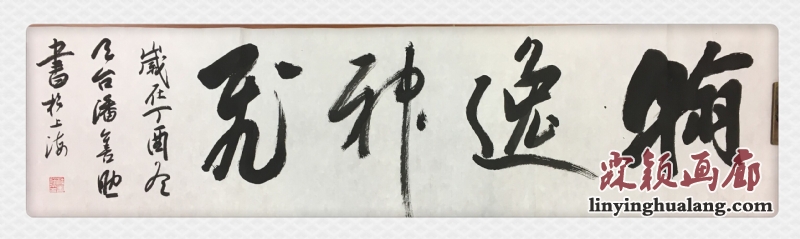 翰逸神飛
歲在丁酉冬
天台潘善助
書於上海
霖颖画廊
linyinghualang.com